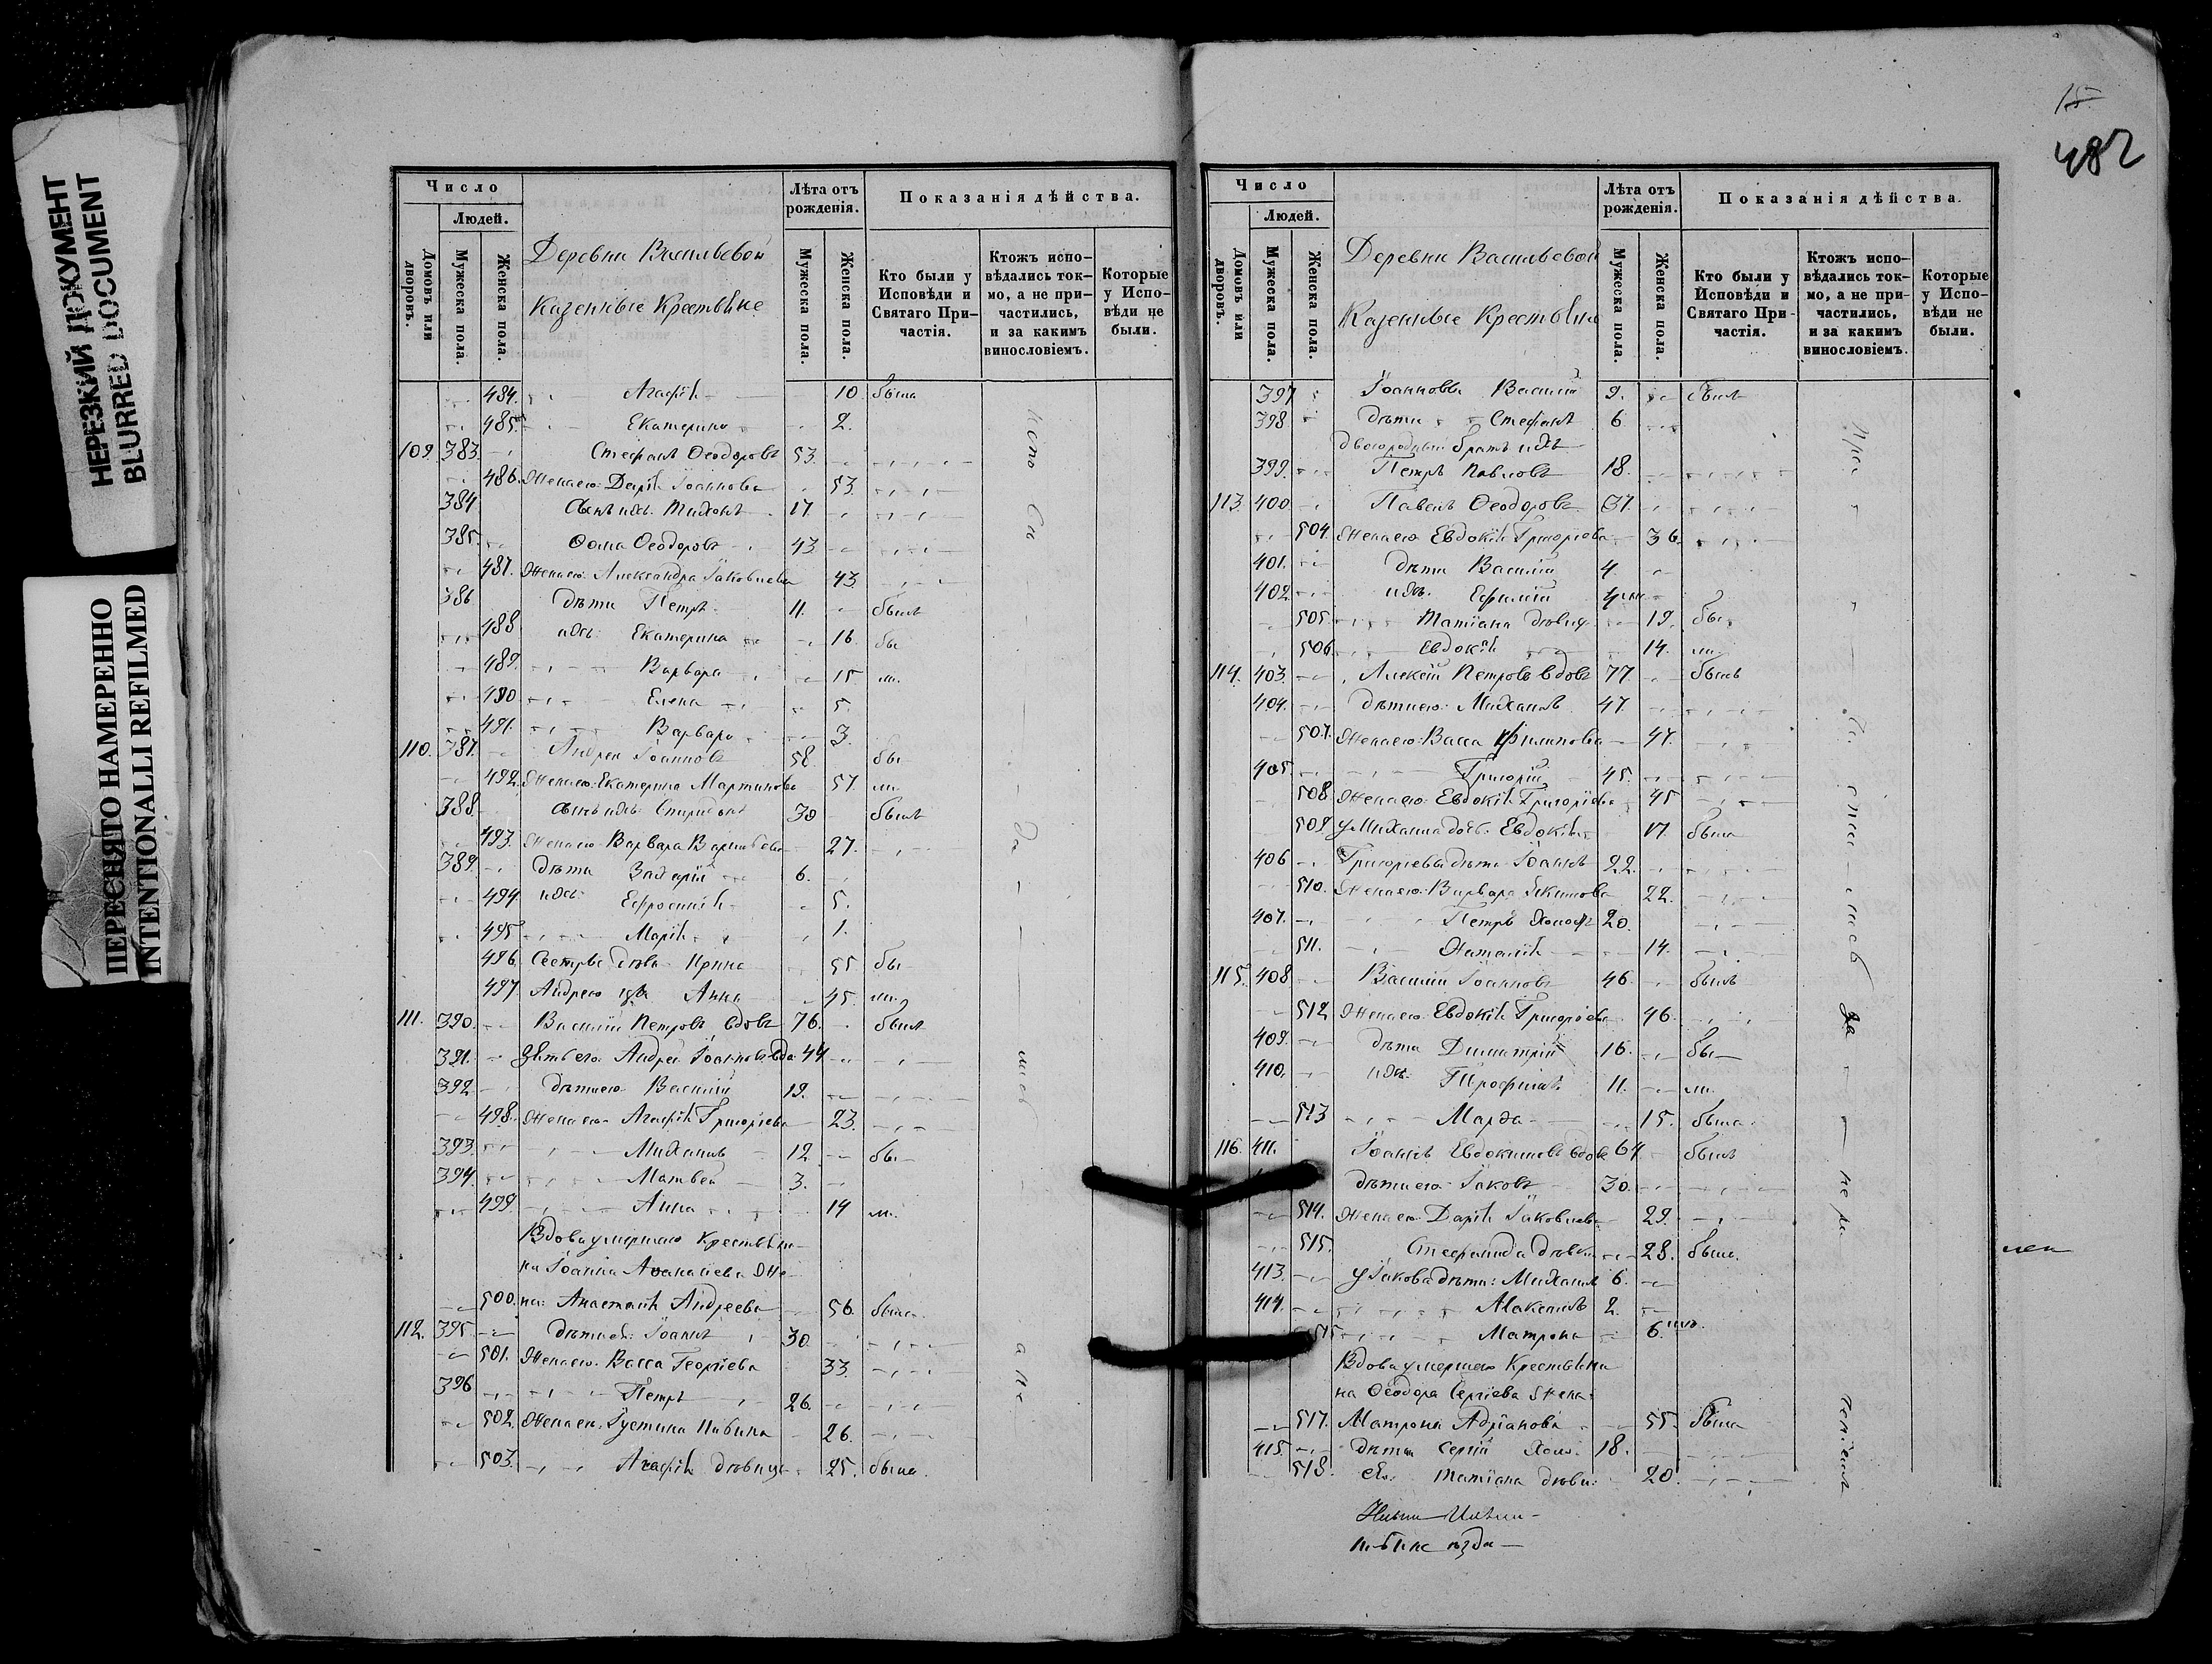 НЕРЕЗКИЙ ДОКУМЕНТ
BLURRED DOCUMENT
ПЕРЕСНЯТО НАМЕРЕННО
INTENTIONALLI REFILMED
Число
Людей.
Домовъ или дворовъ.
Мужеска пола.
Женска пола.
Деревни Васильевой
Казенные Крестьяне
Лѣта отъ рожденія.
Мужеска пола.
Женска пола.
Показанія дѣйства.
Кто были у Исповѣди и Святаго Причастія.
Ктожъ исповѣдались токмо, а не причастились, и за какимъ винословіемъ.
Которые у Исповѣди не были.
484. Агафія 10 была
485. Екатерина 2.
109. 383. Стефанъ Ѳеодоровъ 53.
486. Жена его Дарія Іоаннова 53.
384. Сынъ ихъ Тихонъ 17.
385. Ѳома Ѳеодоровъ 43
487. Жена его Александра Іаковлева 43
386 дѣти Петръ 11. былъ
488. ихъ: Екатерина 16. бы
489. Варвара 15 ли.
490 Елена 5.
491. Варвара 3.
110. 387. Андрей Іоанновъ 58. бы
492. Жена его Екатерина Мартинова 57. ли
388. Сынъ ихъ Спиридонъ 30 былъ
493. Жена его Варвара Васильева 27.
389. дѣти Захарій 6.
494. ихъ: Ефросинія 5.
495 Марія 1.
496. Сестры дѣвы Ирина 55 бы
497. Андрею Анна 45. ли.
111. 390. Василій Петровъ вдовъ 76. былъ
391. Зять его Андрей Іоанновъ вдо 44
392. дѣти его Василій 19.
498. Жена его Агафія Григоріева 23.
393. Михаилъ 12. бы
394. Матвей 3.
499. Анна 14 ли.
Вдова умершаго Крестьяни-
на Іоанна Аѳанасіева Же-
500. на: Анастасія Андреева 56. была.
112. 395. дѣти ея: Іоаннъ 30.
501. Жена его Васса Георгіева 33.
396 Петръ 26.
502. Жена его Іустина 26.
503. Агафія дѣвица 25. была.
испо
вѣ
да
лись
а не
15
482
Число
Людей.
Домовъ или дворовъ.
Мужеска пола.
Женска пола.
Деревни Васильевой
Казенные Крестьяне
Лѣта отъ рожденія.
Мужеска пола.
Женска пола.
Показанія дѣйства.
Кто были у Исповѣди и Святаго Причастія.
Ктожъ исповѣдались токмо, а не причастились, и за какимъ винословіемъ.
Которые у Исповѣди не были.
397 Іоанновы Василій 9. былъ
398 дѣти Стефанъ 6.
двоюродный братъ ихъ
399. Петръ Павловъ 18.
113. 400. Павелъ Ѳеодоровъ 37.
504. Жена его Евдокія Григоріева 36.
401. дѣти Василій 4.
402. ихъ. Ефимій
505. Татіана дѣвица 19. бы
506. Евдокія 14. ли
114. 403. Алексій Петровъ вдовъ 77. былъ
404. дѣти его: Михаилъ 47.
507. Жена его: Васса Филипова 47.
405. Григорій 45.
508. Жена его: Евдокія Григоріева 45
509 у Михаила дочь: Евдокія 17. была
406 Григоріевы дѣти Іоаннъ 22.
510. Жена его: Варвара 22.
407. Петръ Холостъ 20.
511. Наталія 14.
115. 408 Василій Іоанновъ 46. былъ
512 Жена его Евдокія Григоріева 46.
409. дѣти Димитрій 16. бы
410. ихъ: Трофимъ 11. ли.
513 Марѳа 15. была.
116. 411. Іоаннъ Евдокимовъ вдовъ 64 былъ
дѣти его: Іаковъ 30.
514. Жена его Дарія Іаковлева 29.
515. Стефанида дѣвица 28. была.
413. у Іакова дѣти: Михаилъ 6.
414. Максимъ 2.
Матрона 6.
Вдова умершаго Крестьяни
на Ѳеодора Сергіева Жена:
517. Матрона Адріанова 55. была
415. дѣти Сергій Холо. 18.
518. ея: Татіана дѣви. 20.
при
ча
сти
лись
за
не ра